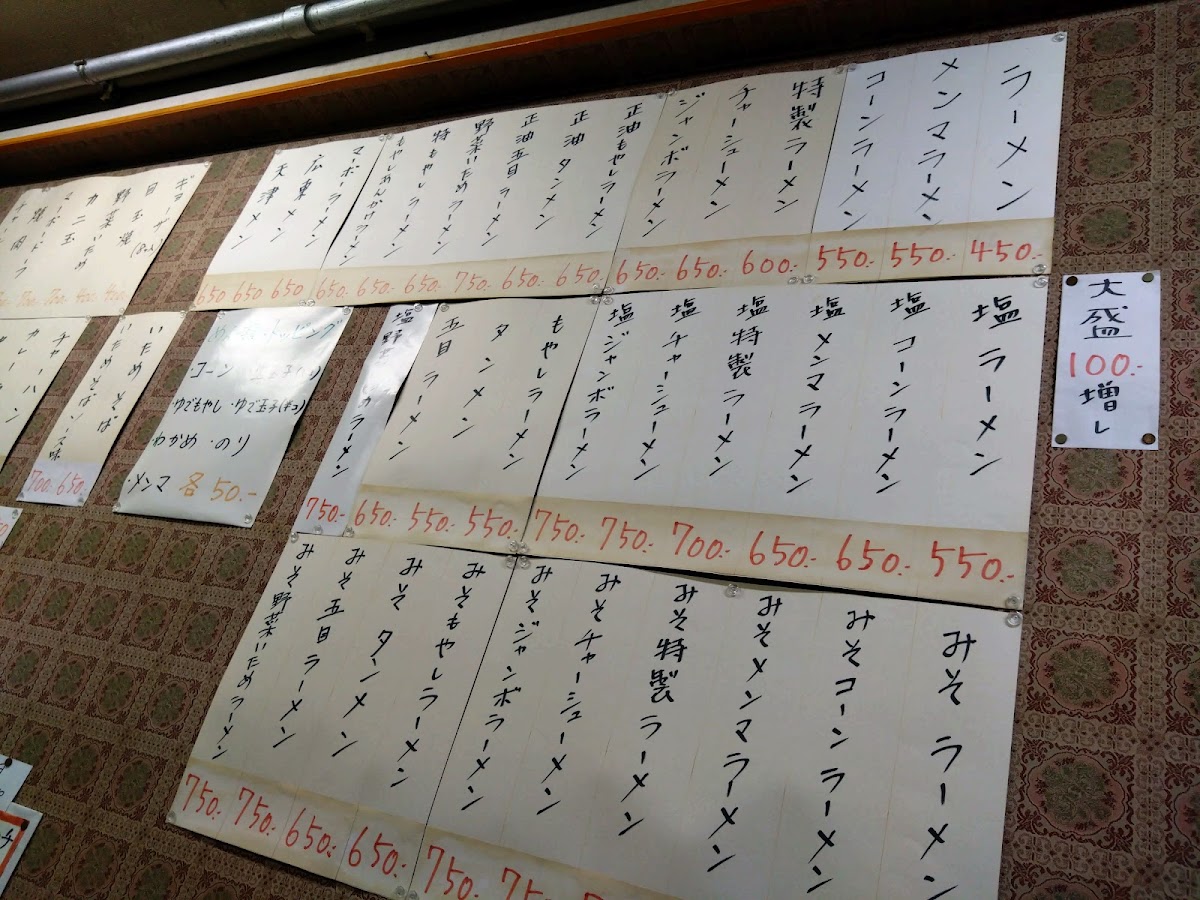 ラーメン 450.-
メンマラーメン 550.-
コーンラーメン 550.-
特製ラーメン 600.-
チャーシューメン 650.-
ジャンボラーメン 650.-
正油もやしラーメン 650.-
正油タンメン 650.-
正油五目ラーメン 750.-
野菜いためラーメン 650.-
特もやしラーメン 650.-
もやしあんかけラーメン 650
マーボーラーメン 650
広東メン 650
天津メン 650
ギョーザ
目玉焼
野菜いため
カニ玉
大盛
100.-
増し
塩ラーメン 550.-
塩コーンラーメン 650.-
塩メンマラーメン 650.-
塩特製ラーメン 700.-
塩チャーシューメン 750.-
塩ジャンボラーメン 750.-
もやしラーメン 550.-
タンメン 550.-
五目ラーメン 650.-
塩野菜 ラーメン 750.-
トッピング
・コーン
・ゆでもやし ・ゆで玉子(キコ)
わかめ ・のり
・メンマ 各50.-
いためそば 650.-
いためそばソース味 700.-
チャーハン
みそラーメン
みそコーンラーメン
みそメンマラーメン
みそ特製ラーメン
みそチャーシューメン
みそジャンボラーメン 750.-
みそもやしラーメン 650.-
みそタンメン 650.-
みそ五目ラーメン 750.-
みそ野菜いためラーメン 750.-